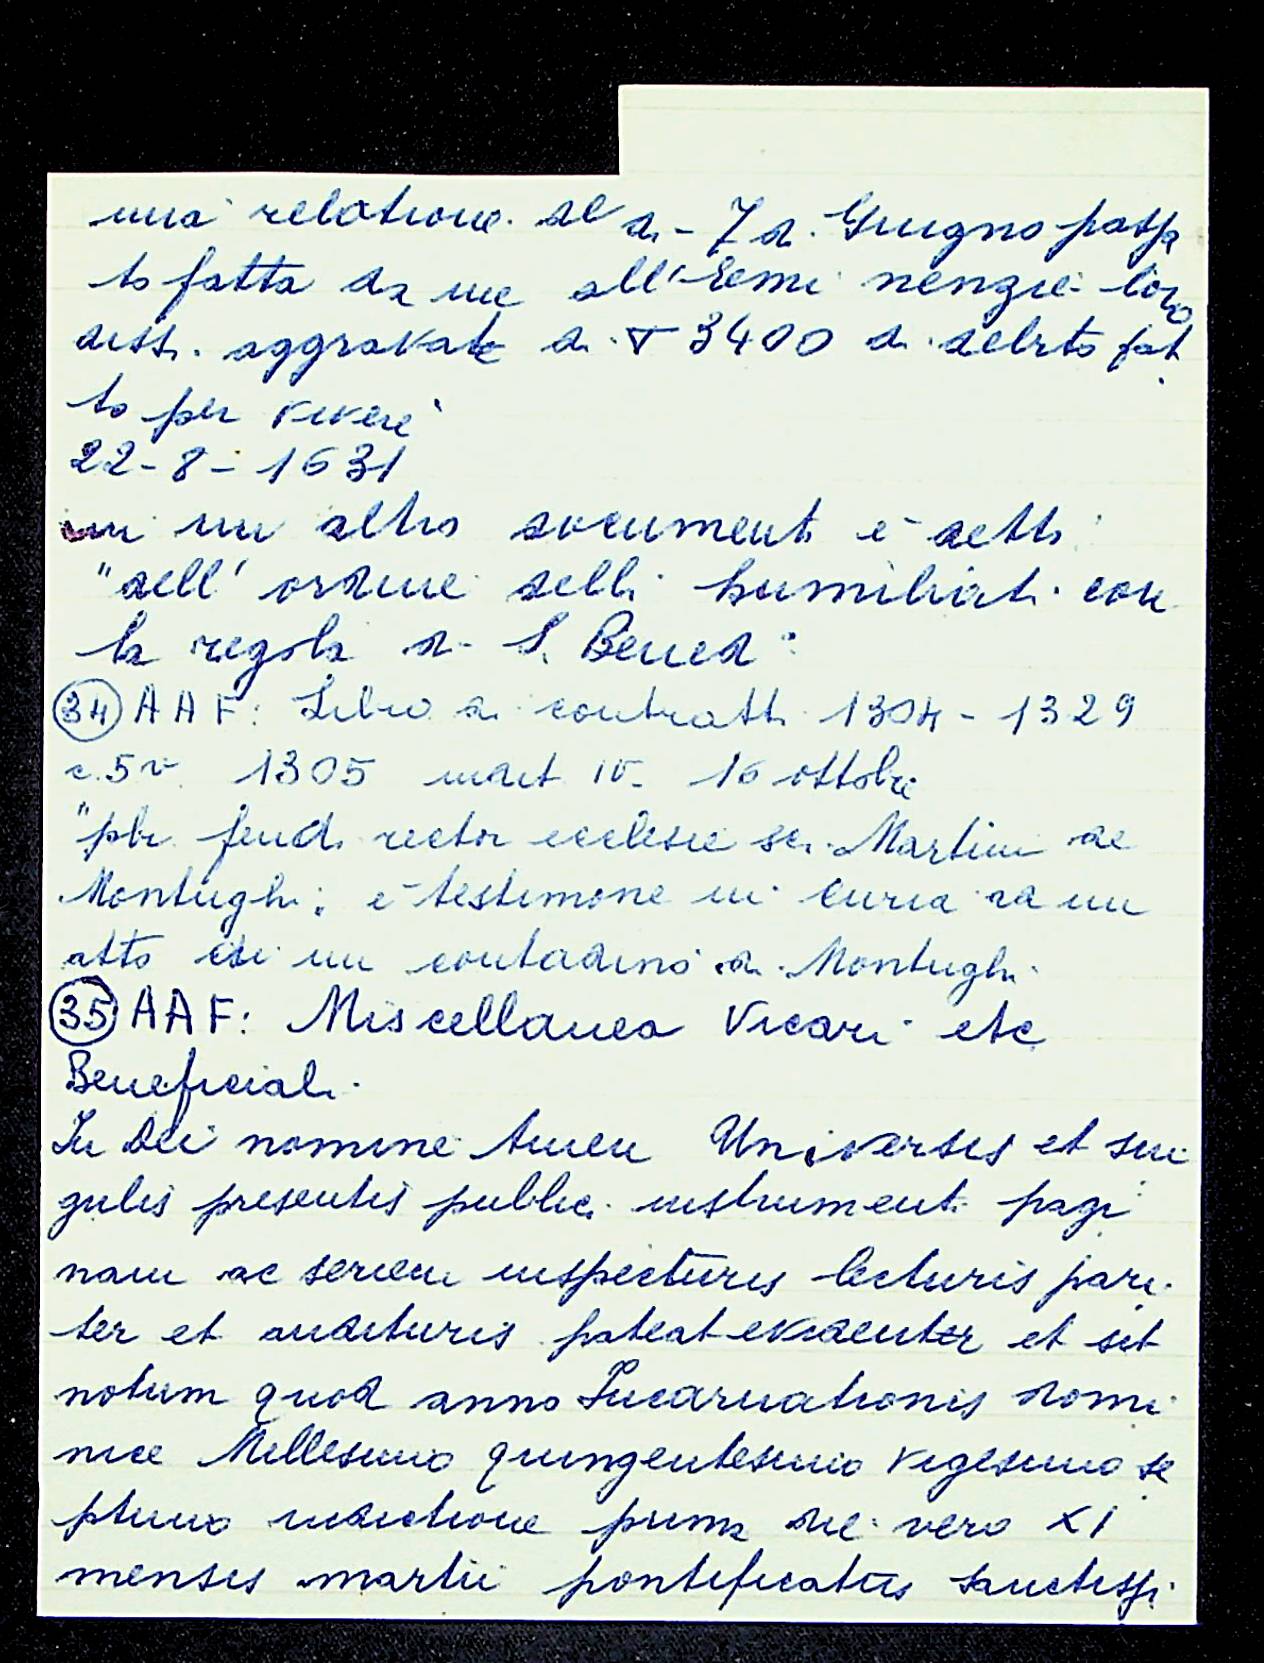 una relatione del dì - 7 di Giugno passa
to fatta da me all'Eemi nenzie loro
dissi aggravate di ∇ 3400 di debito fat
to per vivere"
22-8-1631
in un altro documento è detto:
"dell'ordine delli humiliati con
la regola di S. Bened"
(34) AAF: Libro di contratti 1304-1329
c.5v 1305 indict IV- 16 ottobre
"pbr rector ecclesie sci. Martini de
Montughi; è testimone in Curia ad un
atto di un contadino di Montughi
(35) AAF: Miscellanea Vicari etc
Beneficiali.
In Dei nomine Amen Universis et sin
gulis presentis publici instrumenti pagi
nam ac seriem inspecturis lecturis pari
ter et audituris pateat evidenter et sit
notum quod anno Incarnationis domi
nice Millesimo quingentesimo vigesimo se
ptimo indictione prima die vero XI
mensis martii pontificatus sanctissi